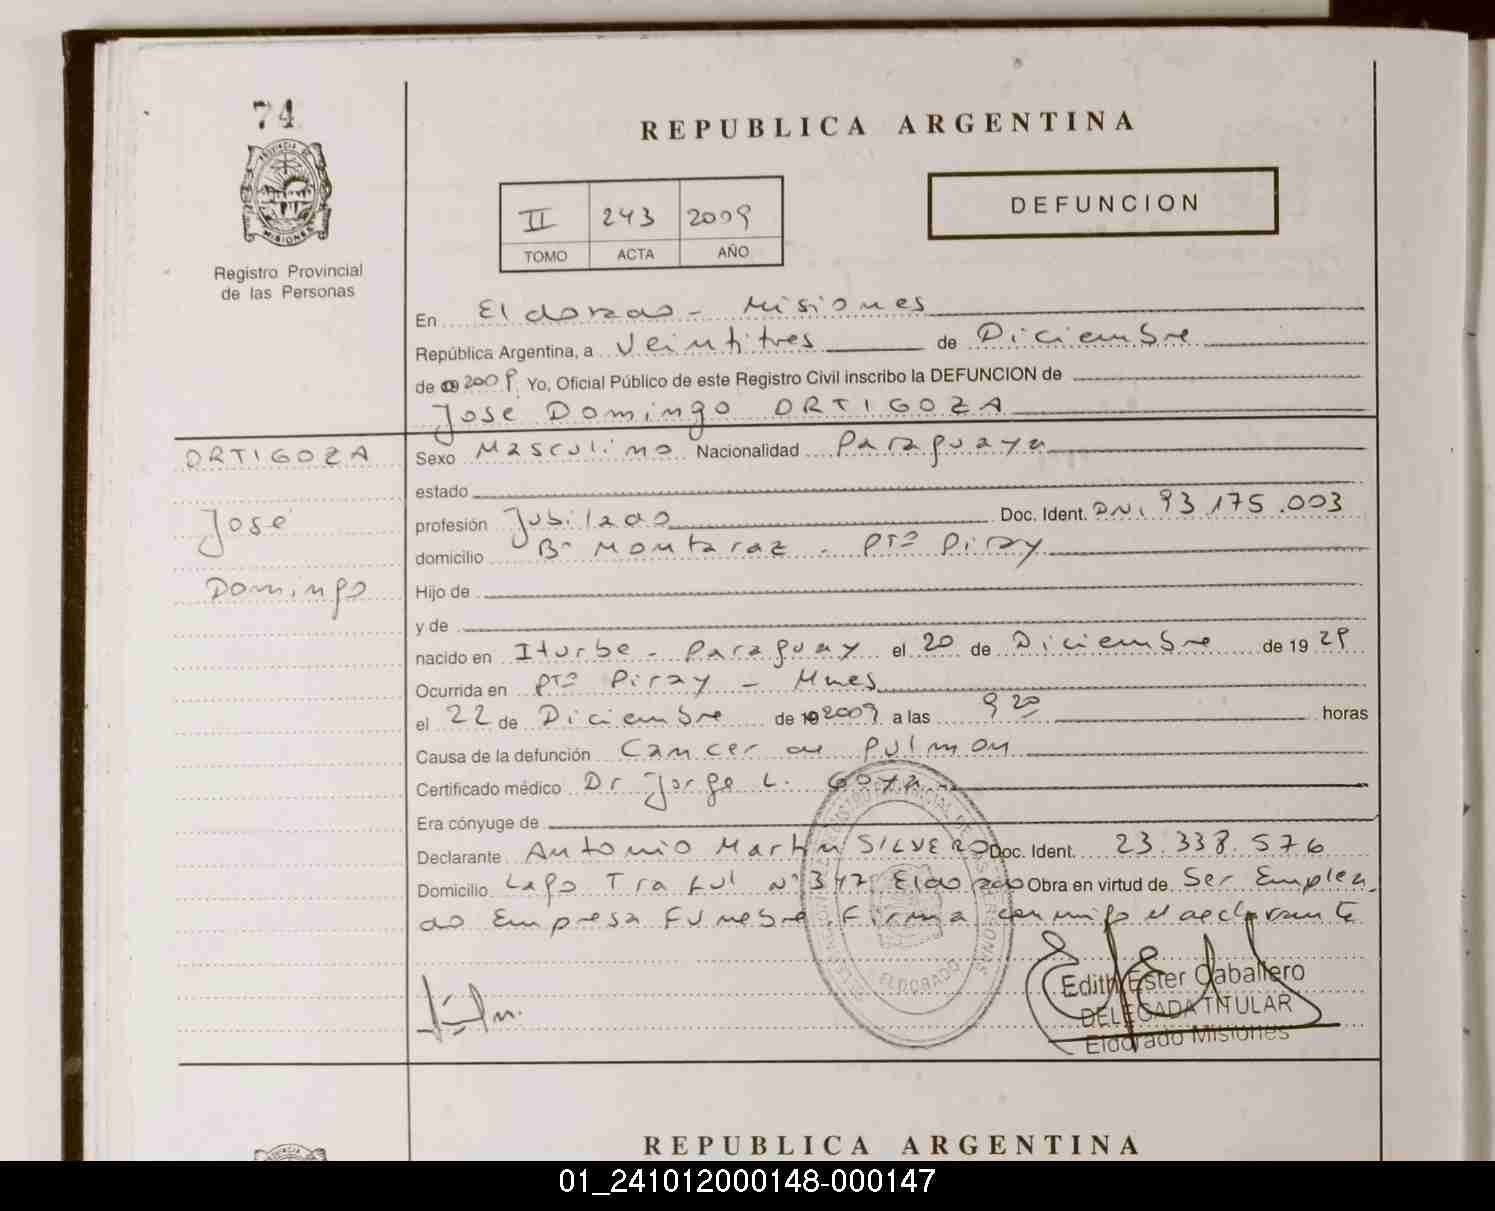 74
PROVINCIA DE
MISIONES
Registro Provincial
de las Personas
REPUBLICA ARGENTINA
II 243 2009
TOMO ACTA AÑO
DEFUNCION
En Eldorado - Misiones
República Argentina, a Veintitres de Diciembre
de 2009. Yo, Oficial Público de este Registro Civil inscribo la DEFUNCION de
José Domingo ORTIGOZA
ORTIGOZA
José
Domingo
Sexo Masculino Nacionalidad Paraguaya
estado
profesión Jubilado Doc. Ident. DNI 93.175.003
domicilio Bº Montaraz - Ptº Piray
Hijo de
y de
nacido en Iturbe - Paraguay el 20 de Diciembre de 19 29
Ocurrida en Ptº Piray - Mnes
el 22 de Diciembre de 2009 a las 9 20 horas
Causa de la defunción Cancer de Pulmon
Certificado médico Dr Jorge L. Goya
Era cónyuge de
Declarante Antonio Martin SILVERO Doc. Ident. 23.338.576
Domicilio Lago Traful Nº 347 Eldorado Obra en virtud de Ser Emplea
do Empresa Funebre. Firma conmigo el declarante
REGISTRO PROVINCIAL DE LAS PERSONAS
ELDORADO
Edith Ester Caballero
DELEGADA TITULAR
Eldorado Misiones
REPUBLICA ARGENTINA
01_241012000148-000147